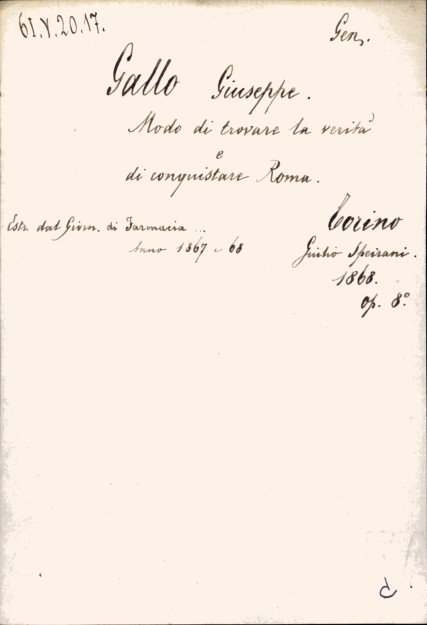 61.V.20.17.
Gen.
Gallo Giuseppe.
Modo di trovare la verità
e
di conquistare Roma.
Estr. dal Giorn. di Farmacia ...
Anno 1867 e 68
Torino
Giulio Speirani.
1868.
op. 8.°